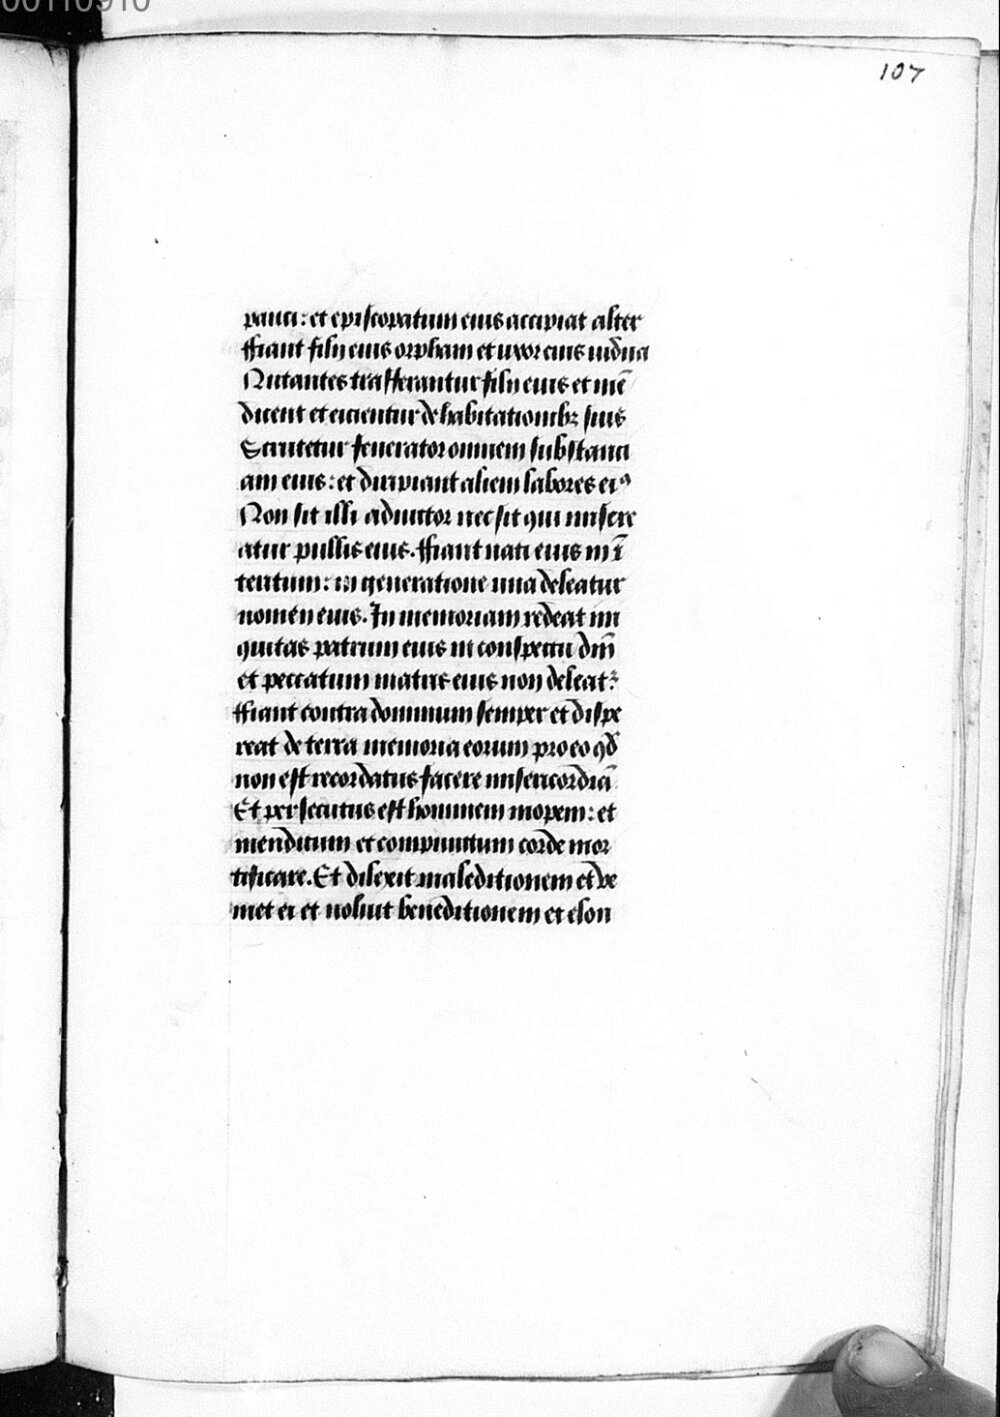 00110910
107
pauci: et episcopatum eius accipiat alter
ffiant filij eius orphani et uxor eius uidua
Nutantes trasferantur filij eius et mē
dicent et eicientur de habitationibꝫ suis
Scrutetur fenerator omnem substanci
am eius: et diripiant alieni labores eiꝰ
Non sit illi adiutor nec sit qui misere
atur pullis eius. ffiant nati eius in ī
teritum: in generatione una deleatur
nomen eius. In memoriam redeat ini
quitas patrum eius in conspectu dnī
et peccatum matris eius non deleat᷑
ffiant contra dominum semper et dispe
reat de terra memoria eorum pro eo qd̄
non est recordatus facere misericordiā
Et persecutus est hominem inopem: et
mendicum et compunctum corde mor
tificare. Et dilexit maleditionem et ve
niet ei et noluit beneditionem et elon